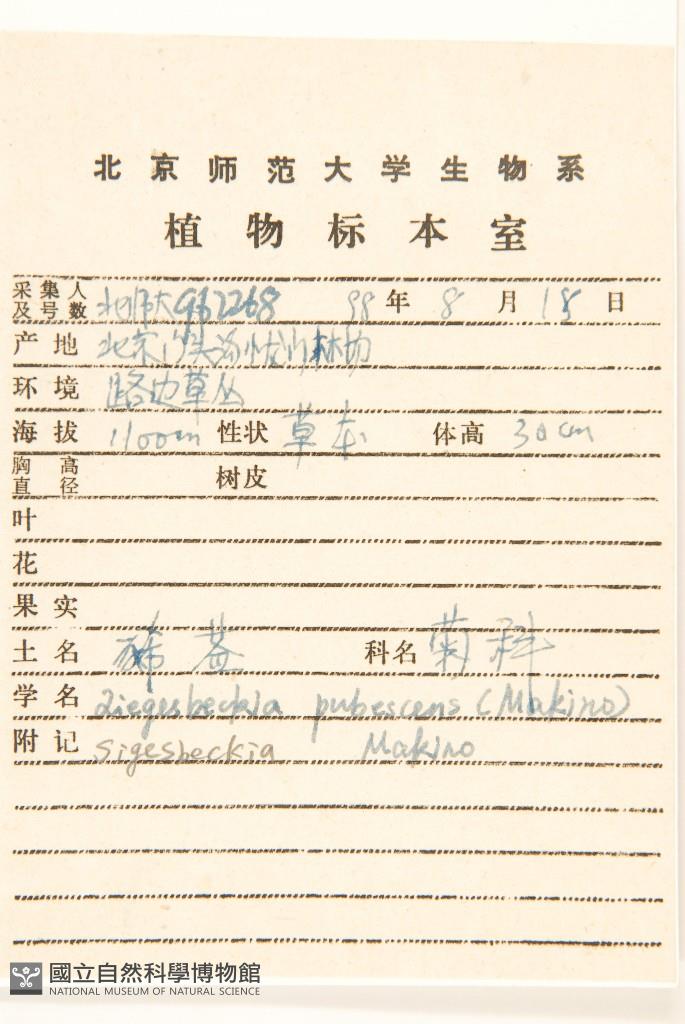 北京师范大学生物系
植物标本室
采集人及号数 北师大962268 98年8月18日
产地 北京门头沟 林场
环境 路边草丛
海拔 1100cm 性状 草本 体高 30cm
胸高直径 树皮
叶
花
果实
土名 豨莶 科名 菊科
学名 Ziegesbeckia pubescens (Makino)
附记 Sigesbeckia Makino
國立自然科學博物館
NATIONAL MUSEUM OF NATURAL SCIENCE